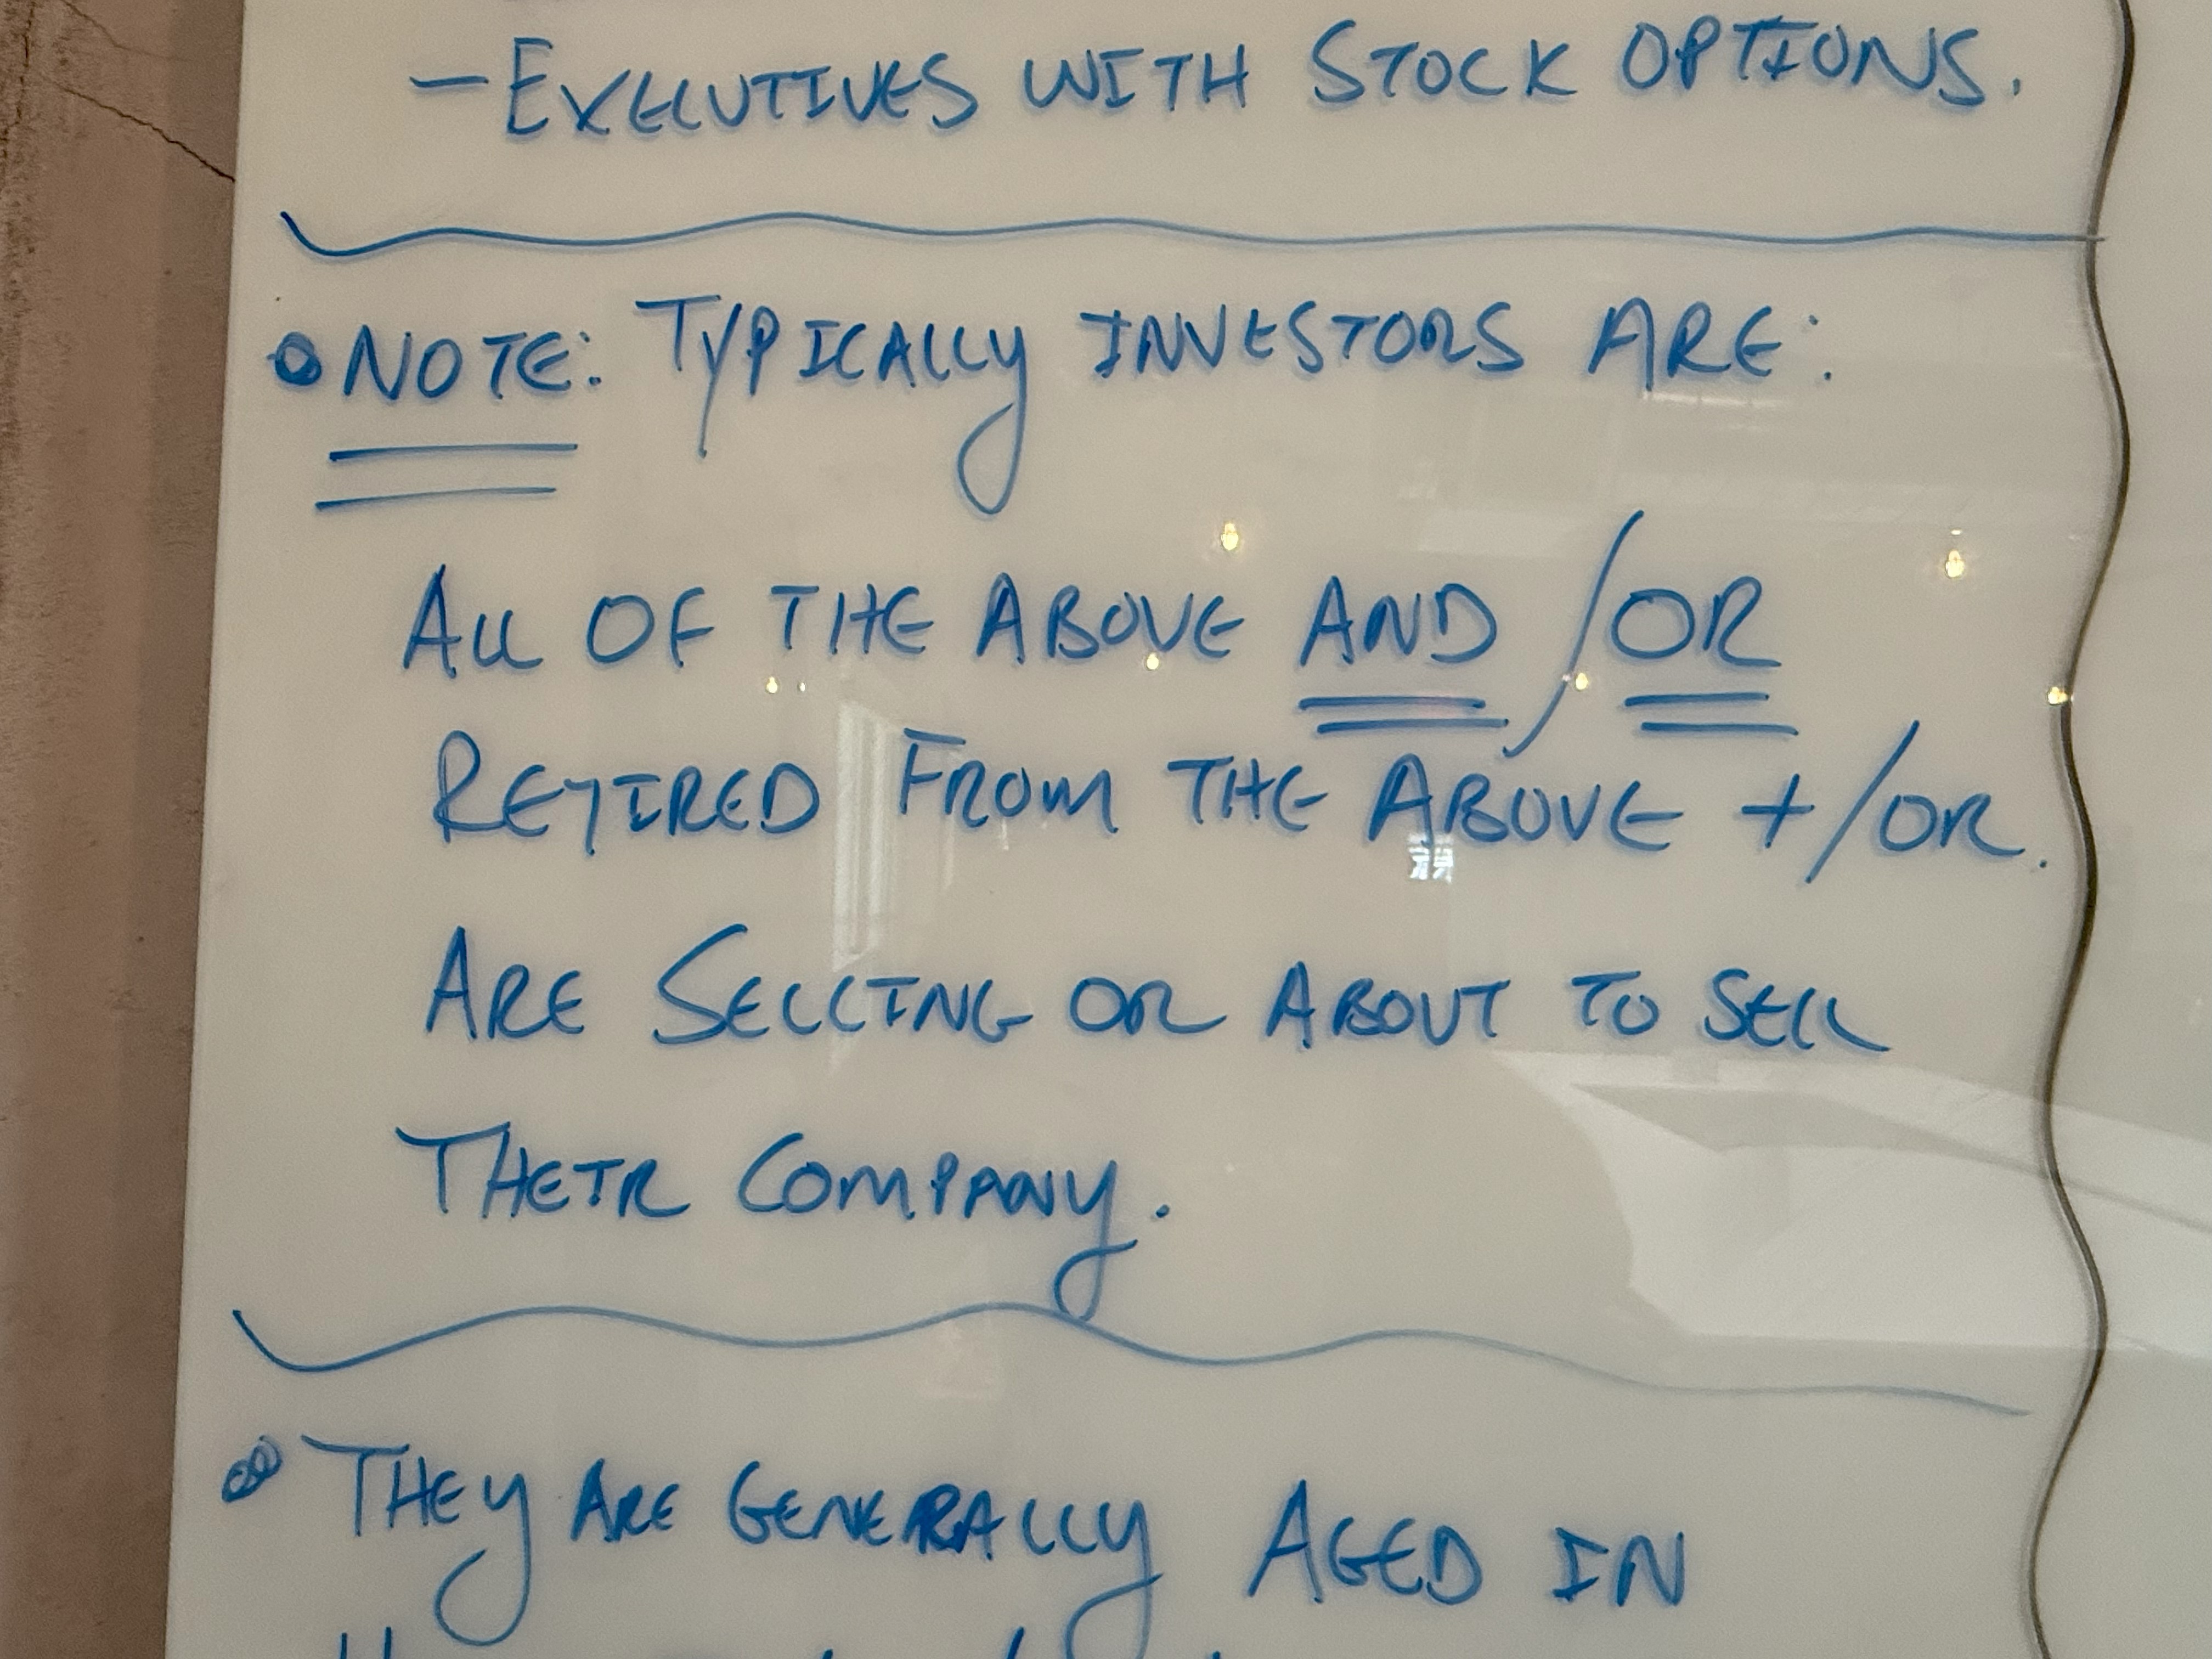 - EXECUTIVES WITH STOCK OPTIONS.
• NOTE: TYPICALLY INVESTORS ARE:
ALL OF THE ABOVE AND /OR
RETIRED FROM THE ABOVE +/OR.
ARE SELLING OR ABOUT TO SELL
THEIR COMPANY.
• THEY ARE GENERALLY AGED IN